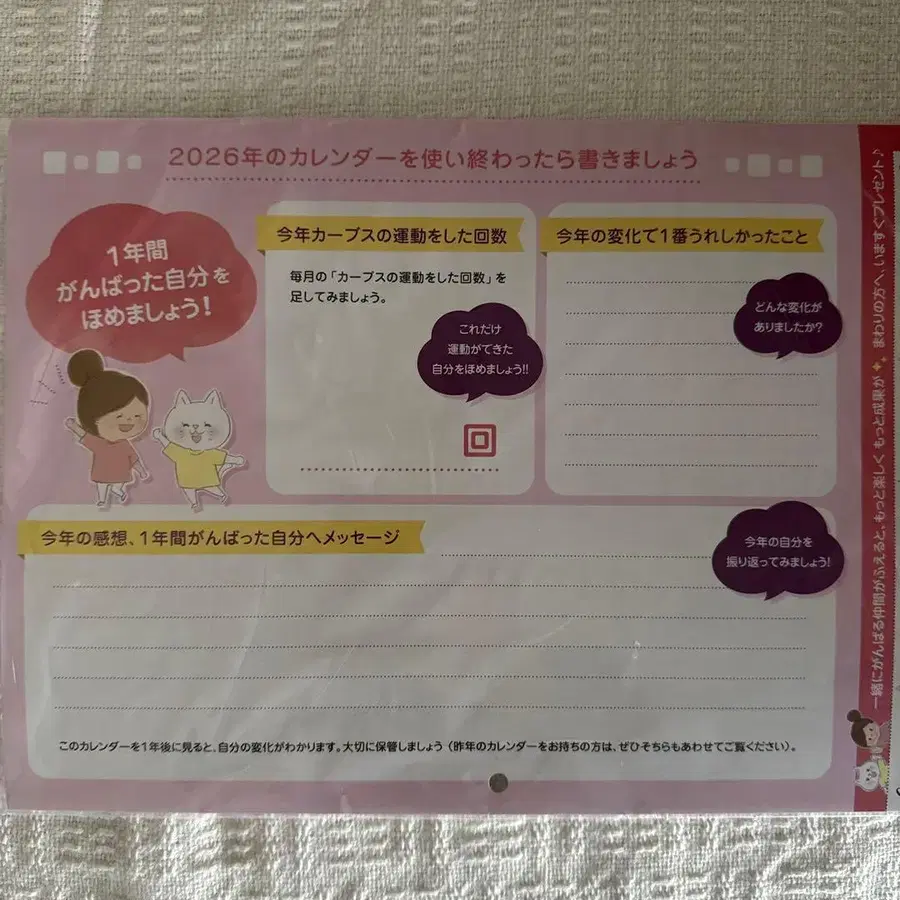 2026年のカレンダーを使い終わったら書きましょう
1年間
がんばった自分を
ほめましょう!
今年カーブスの運動をした回数
毎月の「カーブスの運動をした回数」を
足してみましょう。
これだけ
運動ができた
自分をほめましょう!!
回
今年の変化で1番うれしかったこと
どんな変化が
ありましたか?
今年の感想、1年間がんばった自分へメッセージ
今年の自分を
振り返ってみましょう!
このカレンダーを1年後に見ると、自分の変化がわかります。大切に保管しましょう(昨年のカレンダーをお持ちの方は、ぜひそちらもあわせてご覧ください)。
一緒にがんばる仲間がふえると、もっと楽しく もっと成果が まわりの方へ、いますぐプレゼント♪